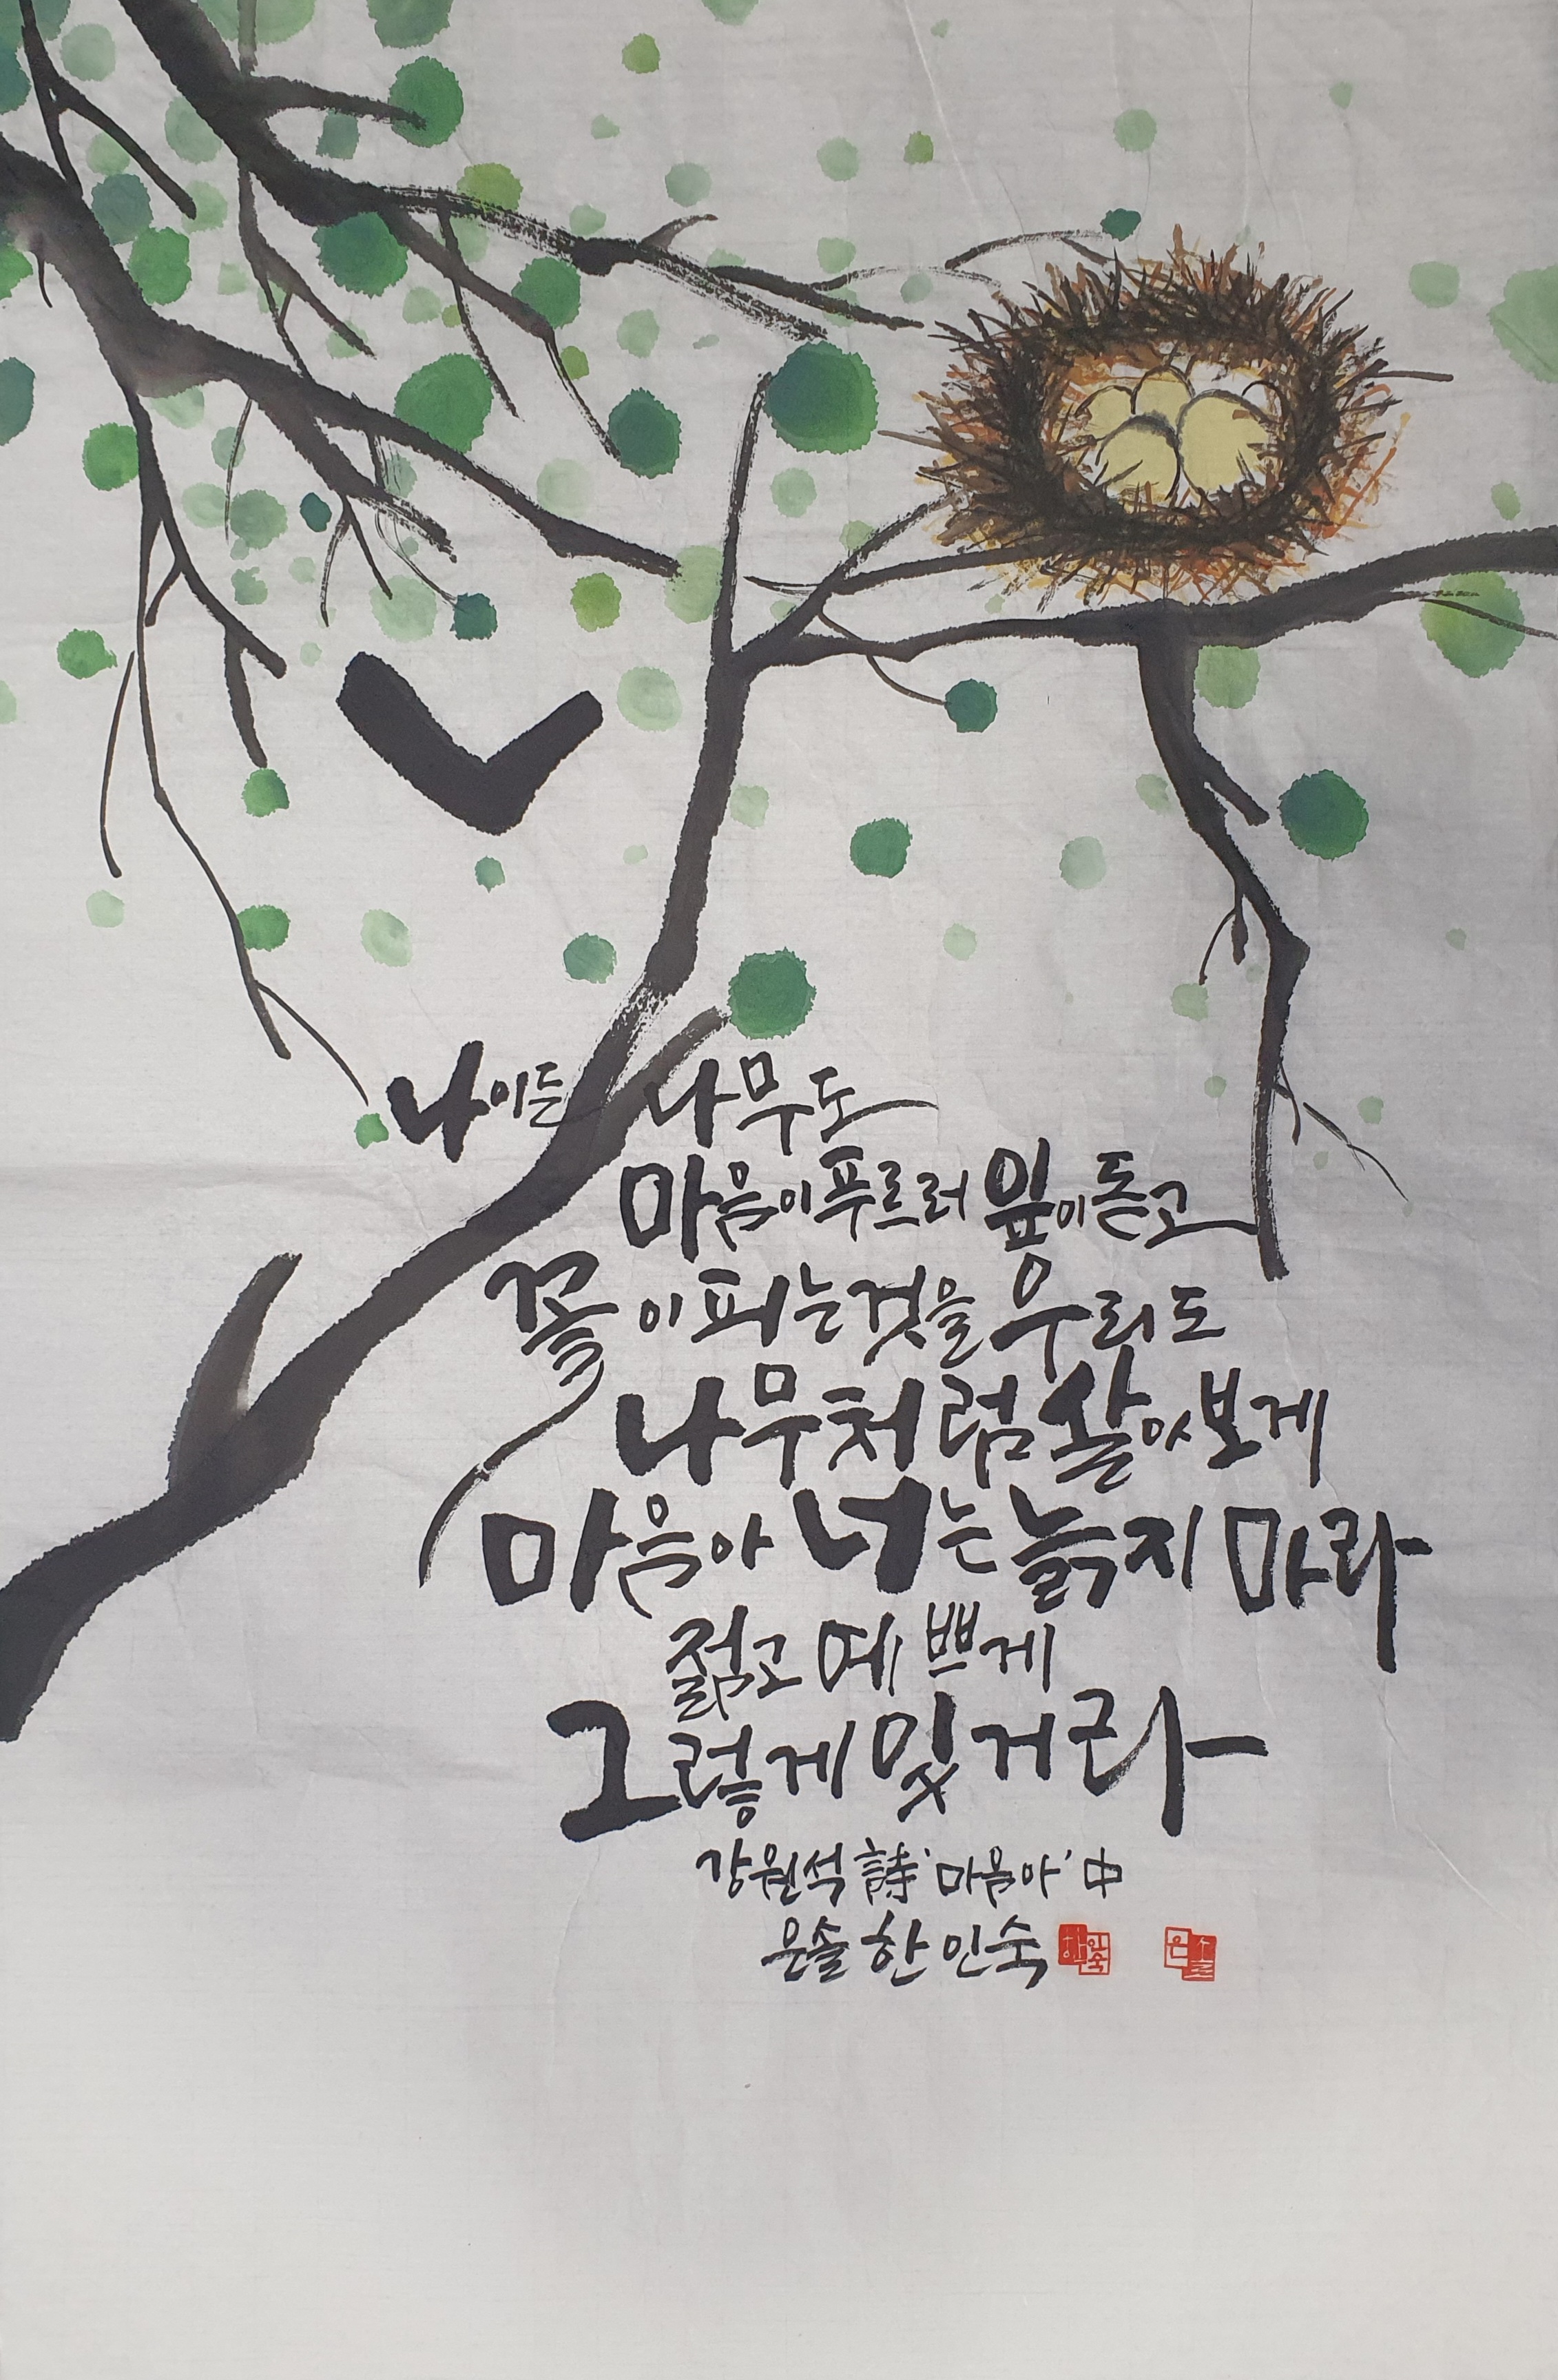 나이든 나무도
마음이 푸르러 잎이 돋고
꽃이 피는 것을 우리도
나무처럼 살아보게
마음아 너는 늙지 마라
젊고 예쁘게
그렇게 있거라
강원석 詩 '마음아' 中
은솔 한인숙 한인숙 은솔